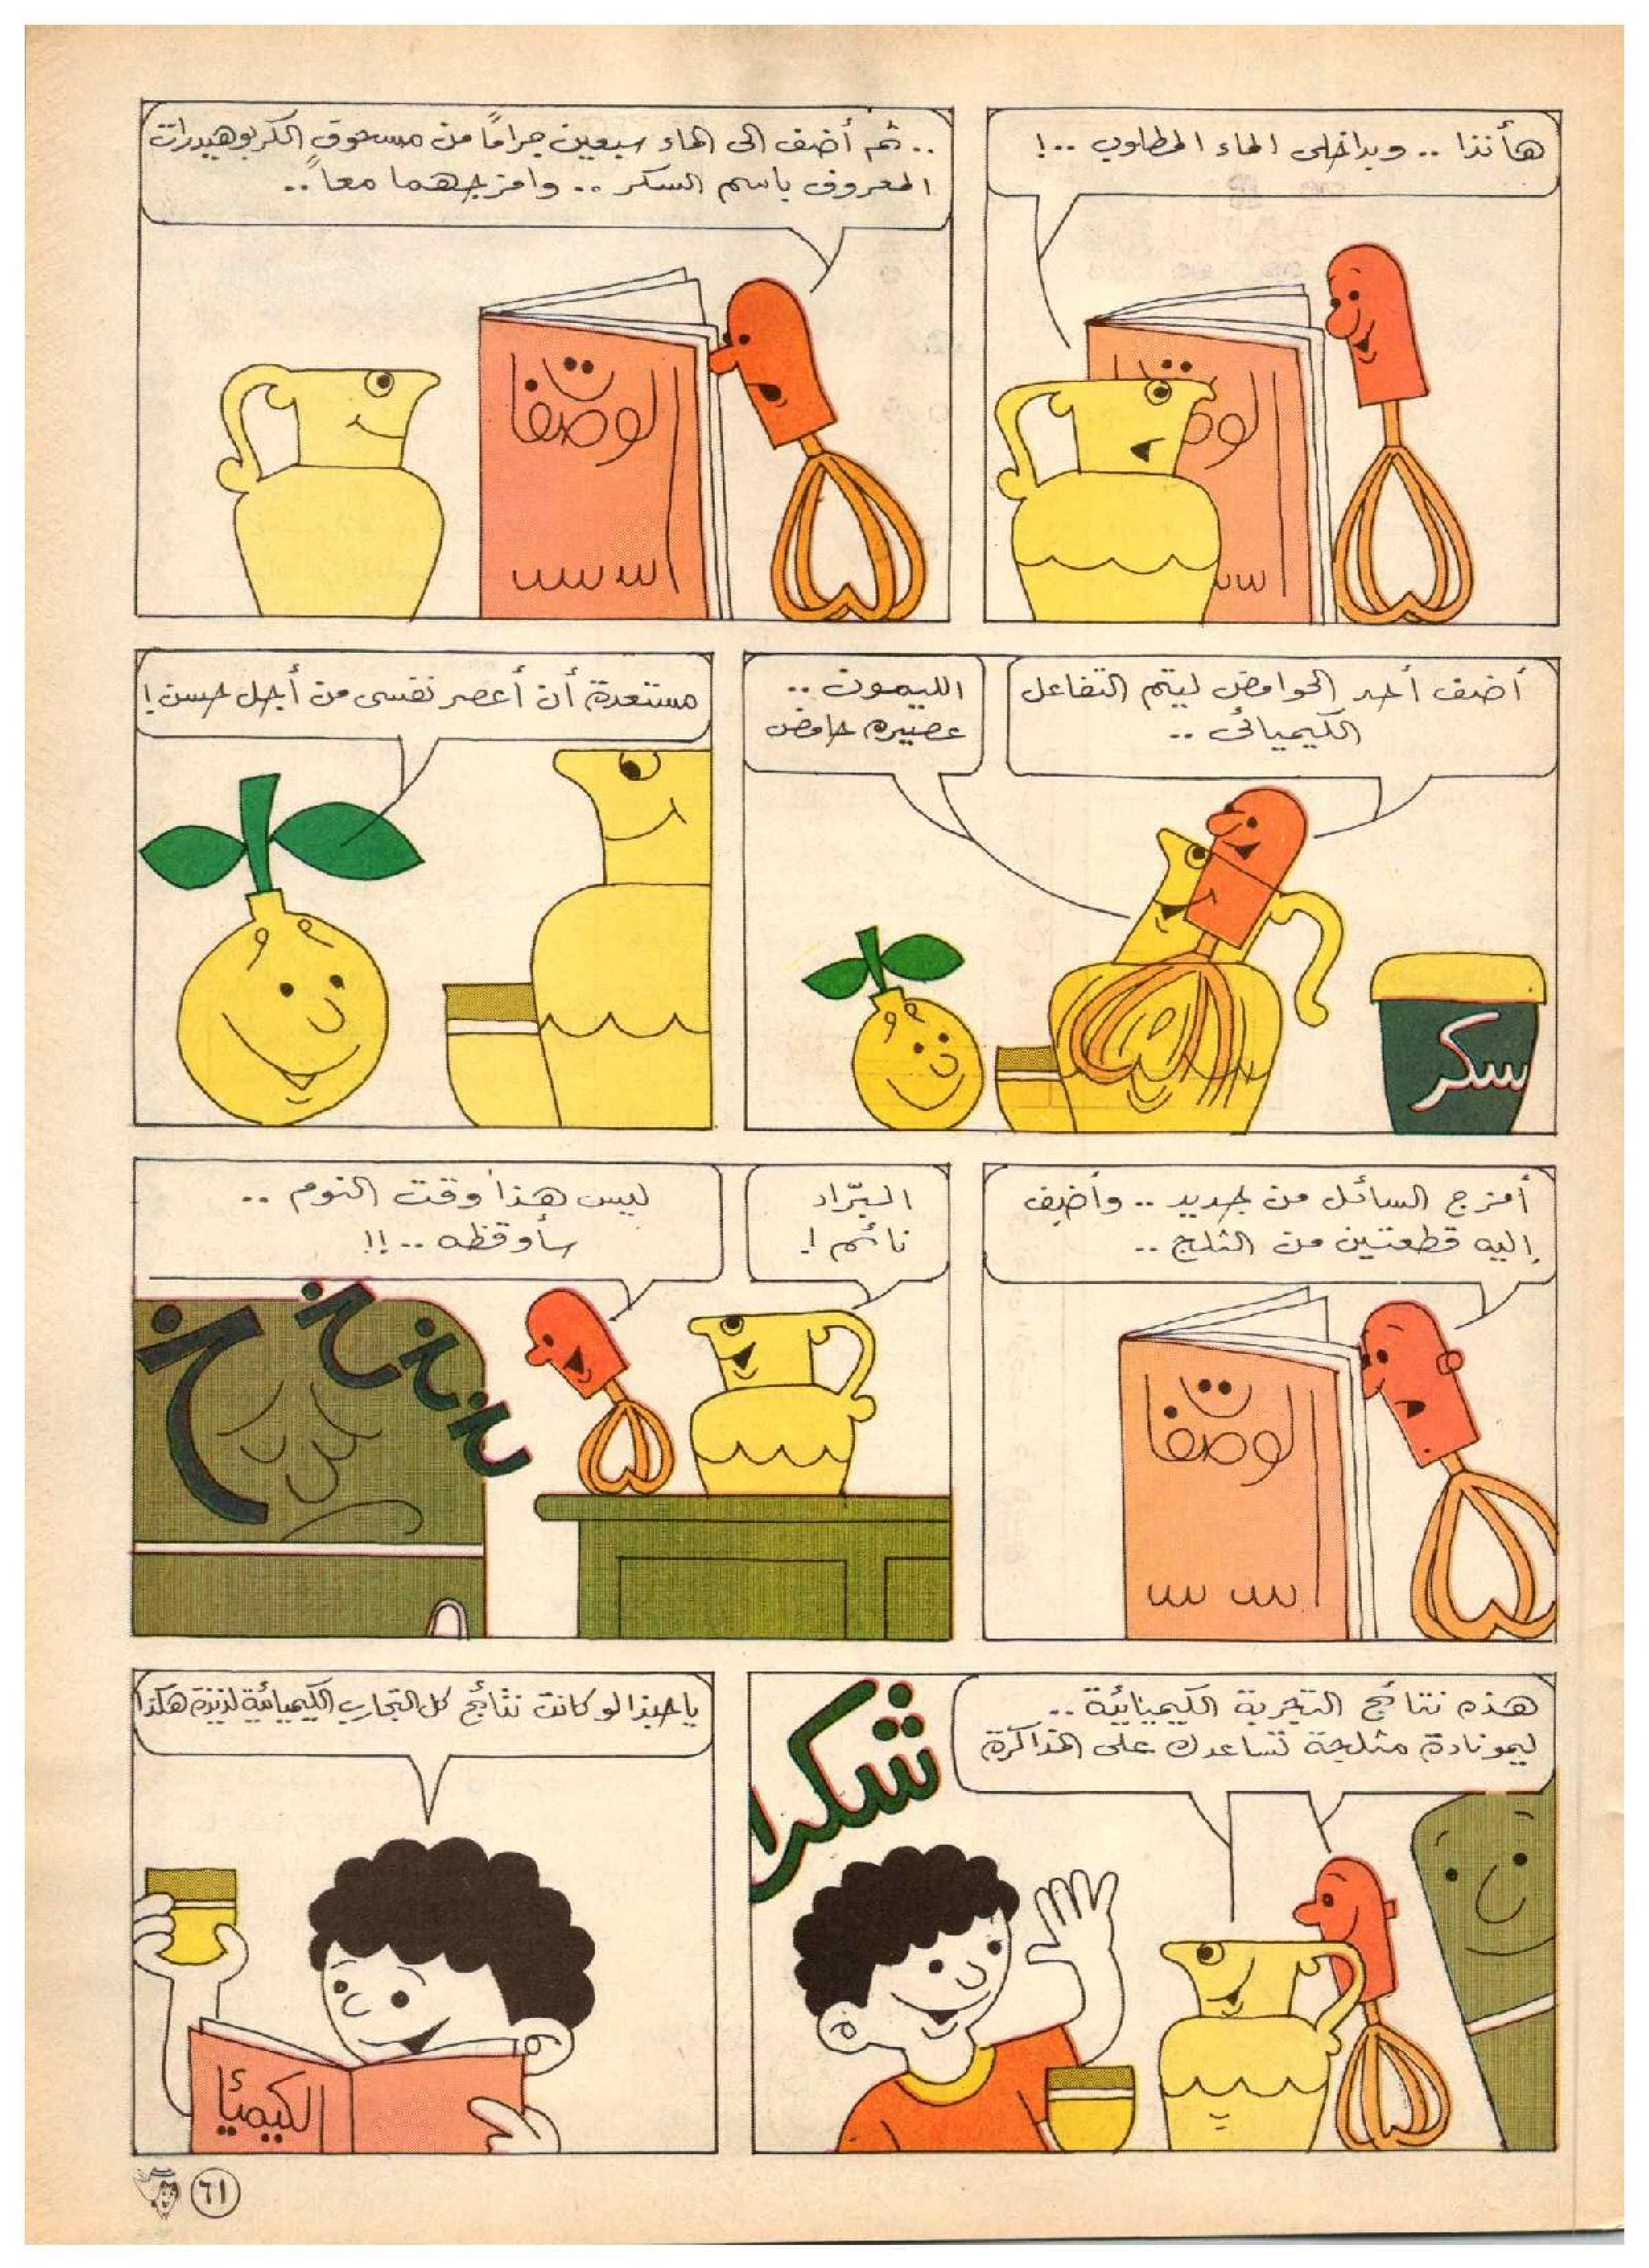 هأنذا .. وبداخلى الماء المطلوب ..!
الوصفا
.. ثم أضف الى الماء سبعين جرامًا من مسحوق الكربوهيدرات
المعروف باسم السكر .. وامزجهما معاً ..
الوصفات
أضف أحد الحوامض ليتم التفاعل
الكيميائى ..
الليمون ..
عصيره حامض
سكر
مستعدة أن أعصر نفسى من أجل حسن !
أمزج السائل من جديد .. وأضيف
إليه قطعتين من الثلج ..
الوصفات
البرّاد
نائم !
ليس هذا وقت النوم ..
سأوقظه ..!!
خ خ خ خ
هذه نتائج التجربة الكيميائية ..
ليمونادة مثلجة تساعدك على المذاكرة
شكرا
ياحبذا لو كانت نتائج كل التجارب الكيميائية لذيذة هكذا
الكيميأ
٦١